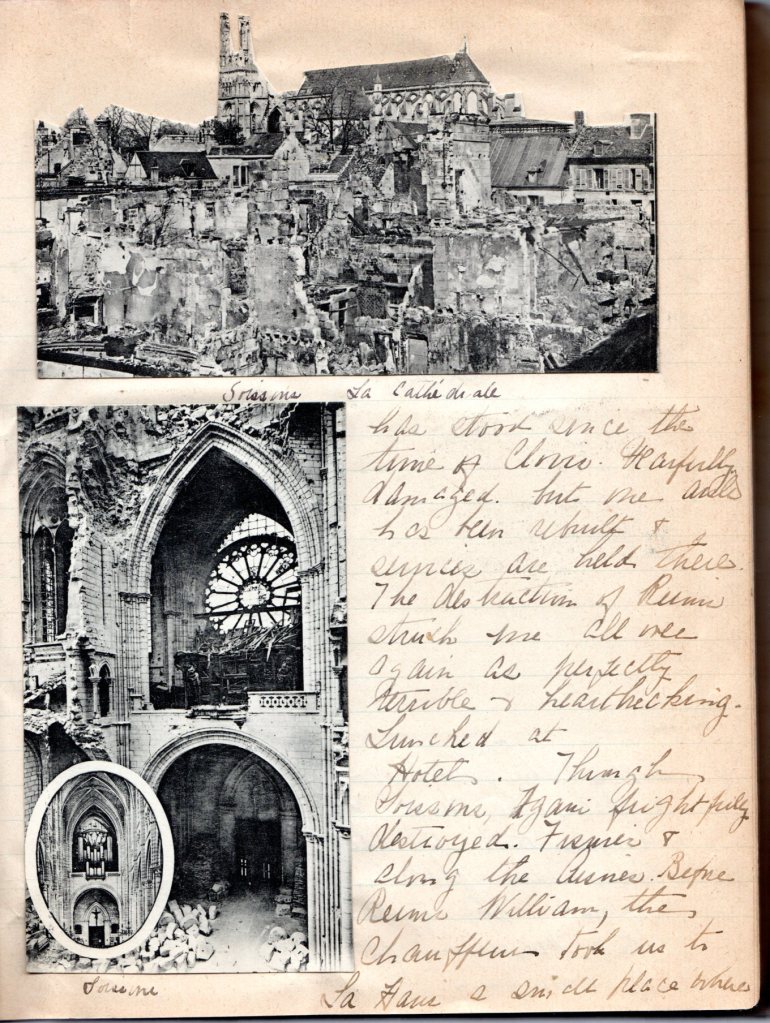 Soissons La Cathédrale
has stood since the
time of Clovis. Fearfully
damaged. but one aisle
has been rebuilt &
services are held there.
The destruction of Reims
struck me all over
again as perfectly
terrible & heartbreaking.
Lunched at
Hotel. Through
Soissons, again frightfully
destroyed. Fismes &
along the Aisne. Before
Reims William, the
chauffeur took us to
La a small place where
Soissons